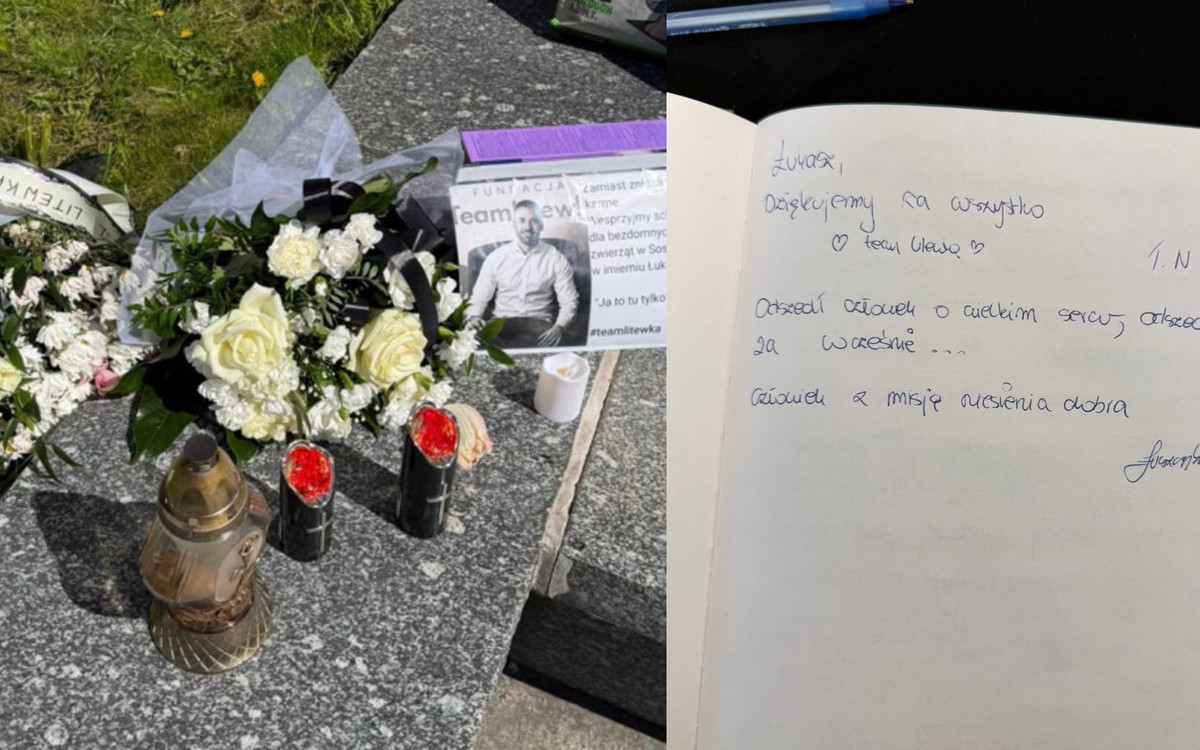 LITEWK
FUNDACJA
Team
Zamiast zni
karmę.
Wesprzyjmy sc
dla bezdomnyc
zwierząt w Sos
w imieniu Łuk
"Ja to tu tylko
#teamlitewka
Łukasz,
Dziękujemy za wszystko
♡ team Litewka ♡
T. N
Odszedł człowiek o wielkim sercu, odszed
za wcześnie ...
Człowiek z misją niesienia dobra